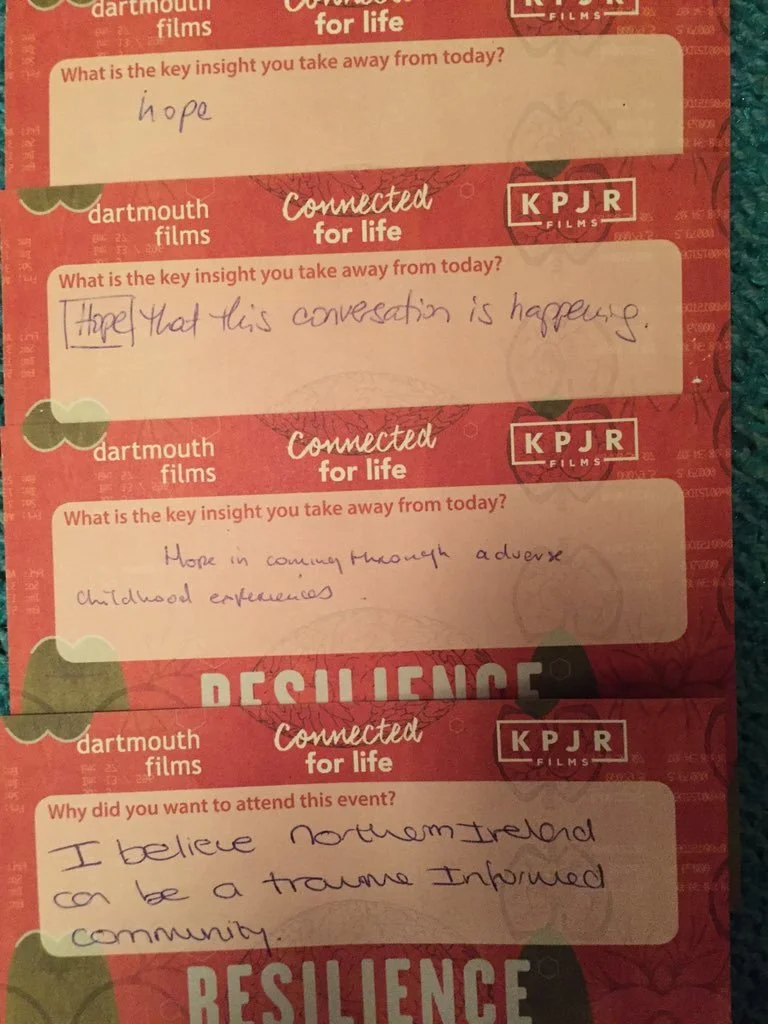 dartmouth films
Connected for life
KPJR FILMS
What is the key insight you take away from today?
hope
dartmouth films
Connected for life
KPJR FILMS
What is the key insight you take away from today?
Hope that this conversation is happening.
dartmouth films
Connected for life
KPJR FILMS
What is the key insight you take away from today?
Hope in coming through adverse
childhood experiences.
RESILIENCE
dartmouth films
Connected for life
KPJR FILMS
Why did you want to attend this event?
I believe Northern Ireland
can be a trauma Informed
community.
RESILIENCE